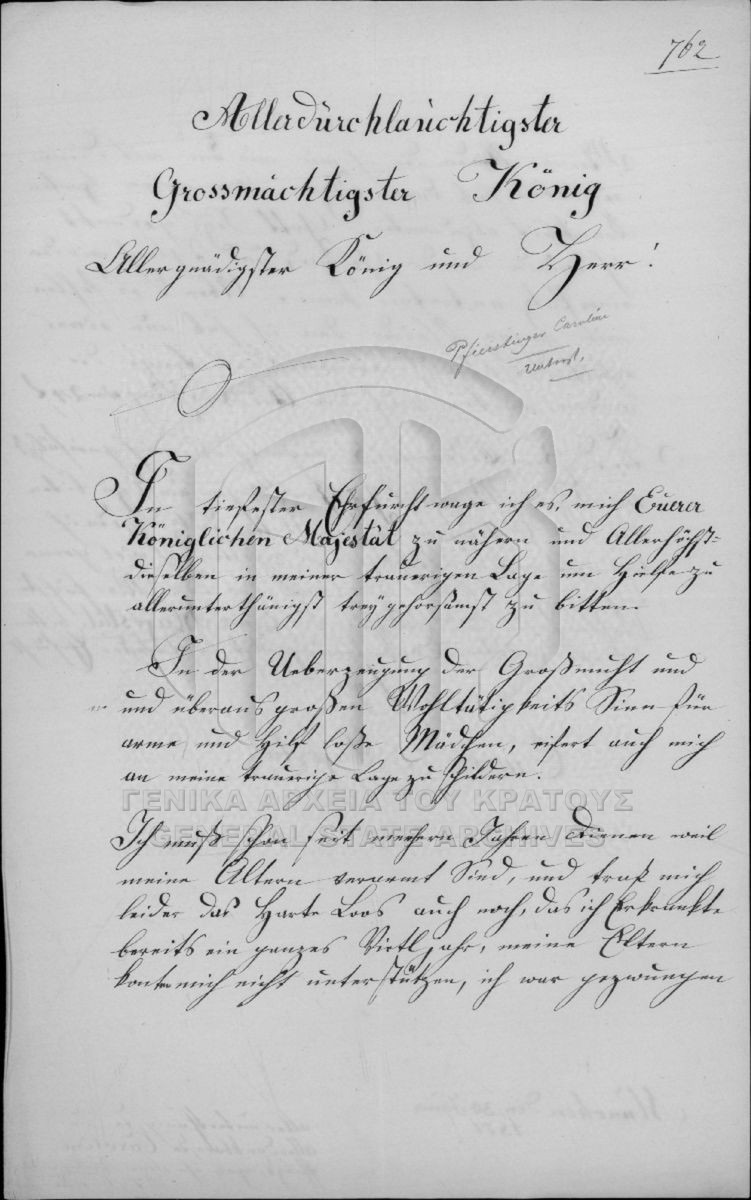 762
Allerdürchlaüchtigster
Grossmächtigster König
Allergnädigster König und Herr!
Pfierstinger Caroline
Unterst.
In tiefester Ehrfurcht wage ich es, mich Euerer
Königlichen Majestät zu nähern und Allerhöchst=
dieselben in meiner trauerigen Lage um Hielfe zu
allerunterthänigst treügehorsamst zu bitten.
In der Ueberzeugung der Großmuht und
und überaus großen Wohltätigkeits Sinn für
arme und Hilf loße Mädchen, eifert auch mich
an meine trauerige Lage zu schildern.
ΓΕΝΙΚΑ ΑΡΧΕΙΑ ΤΟΥ ΚΡΑΤΟΥΣ
GENERAL STATE ARCHIVES
Ich muß schon seit mehern Jahren Dienen weil
meine Altern verarmt Sind, und traf mich
leider das Harte Loos auch noch, das ich Erkrankte
bereits ein ganzes Virtljahr, meine Eltern
konten mich nicht unterstützen, ich war gezwungen